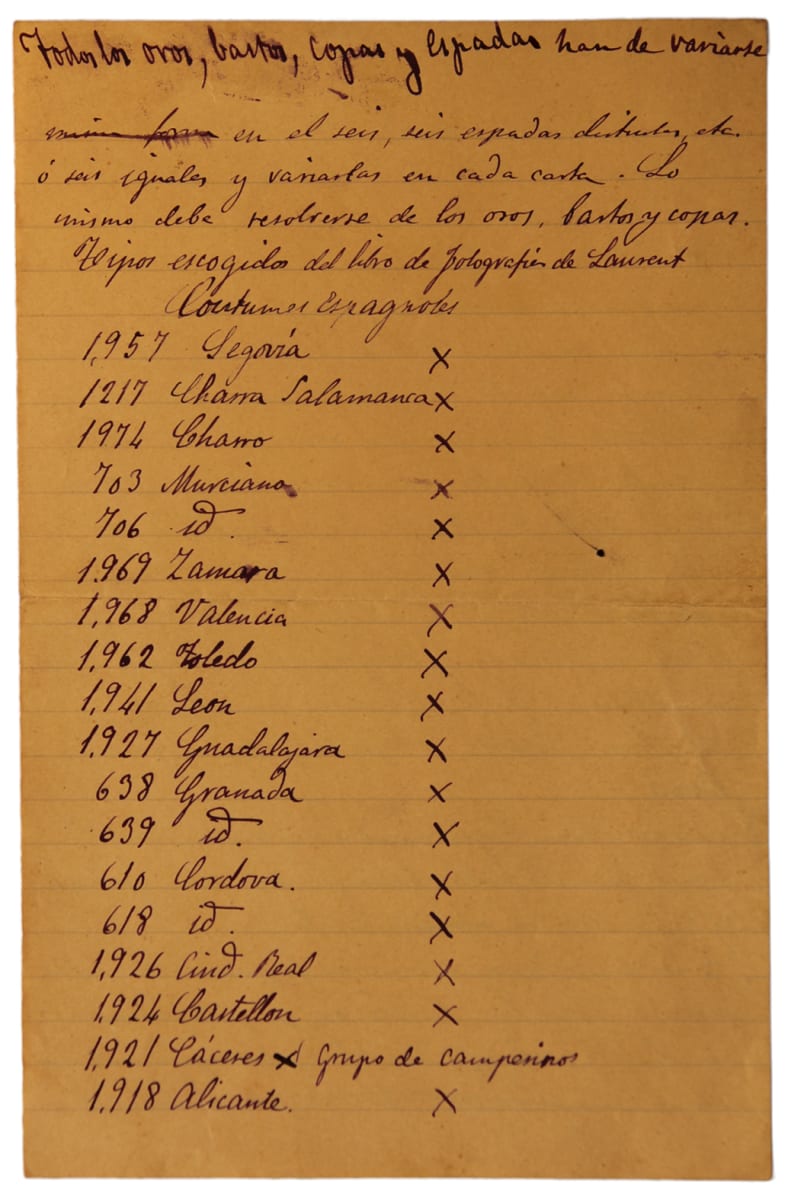 Todos los oros, bastos, copas y espadas han de variarse
en el seis, seis espadas distintas, etc.
ó seis iguales y variarlas en cada carta. Lo
mismo debe resolverse de los oros, bastos y copas.
Tipos escogidos del libro de fotografías de Laurent
Coutumes Espagnoles
1,957 Segovía X
1217 Charra Salamanca X
1974 Charro X
703 Murciano X
706 id. X
1.969 Zamora X
1,968 Valencia X
1,962 Toledo X
1,941 Leon X
1,927 Guadalajara X
638 Granada X
639 id. X
610 Cordova. X
618 id. X
1,926 Ciud. Real X
1,924 Castellon X
1,921 Cáceres X Grupo de campesinos
1,918 Alicante. X